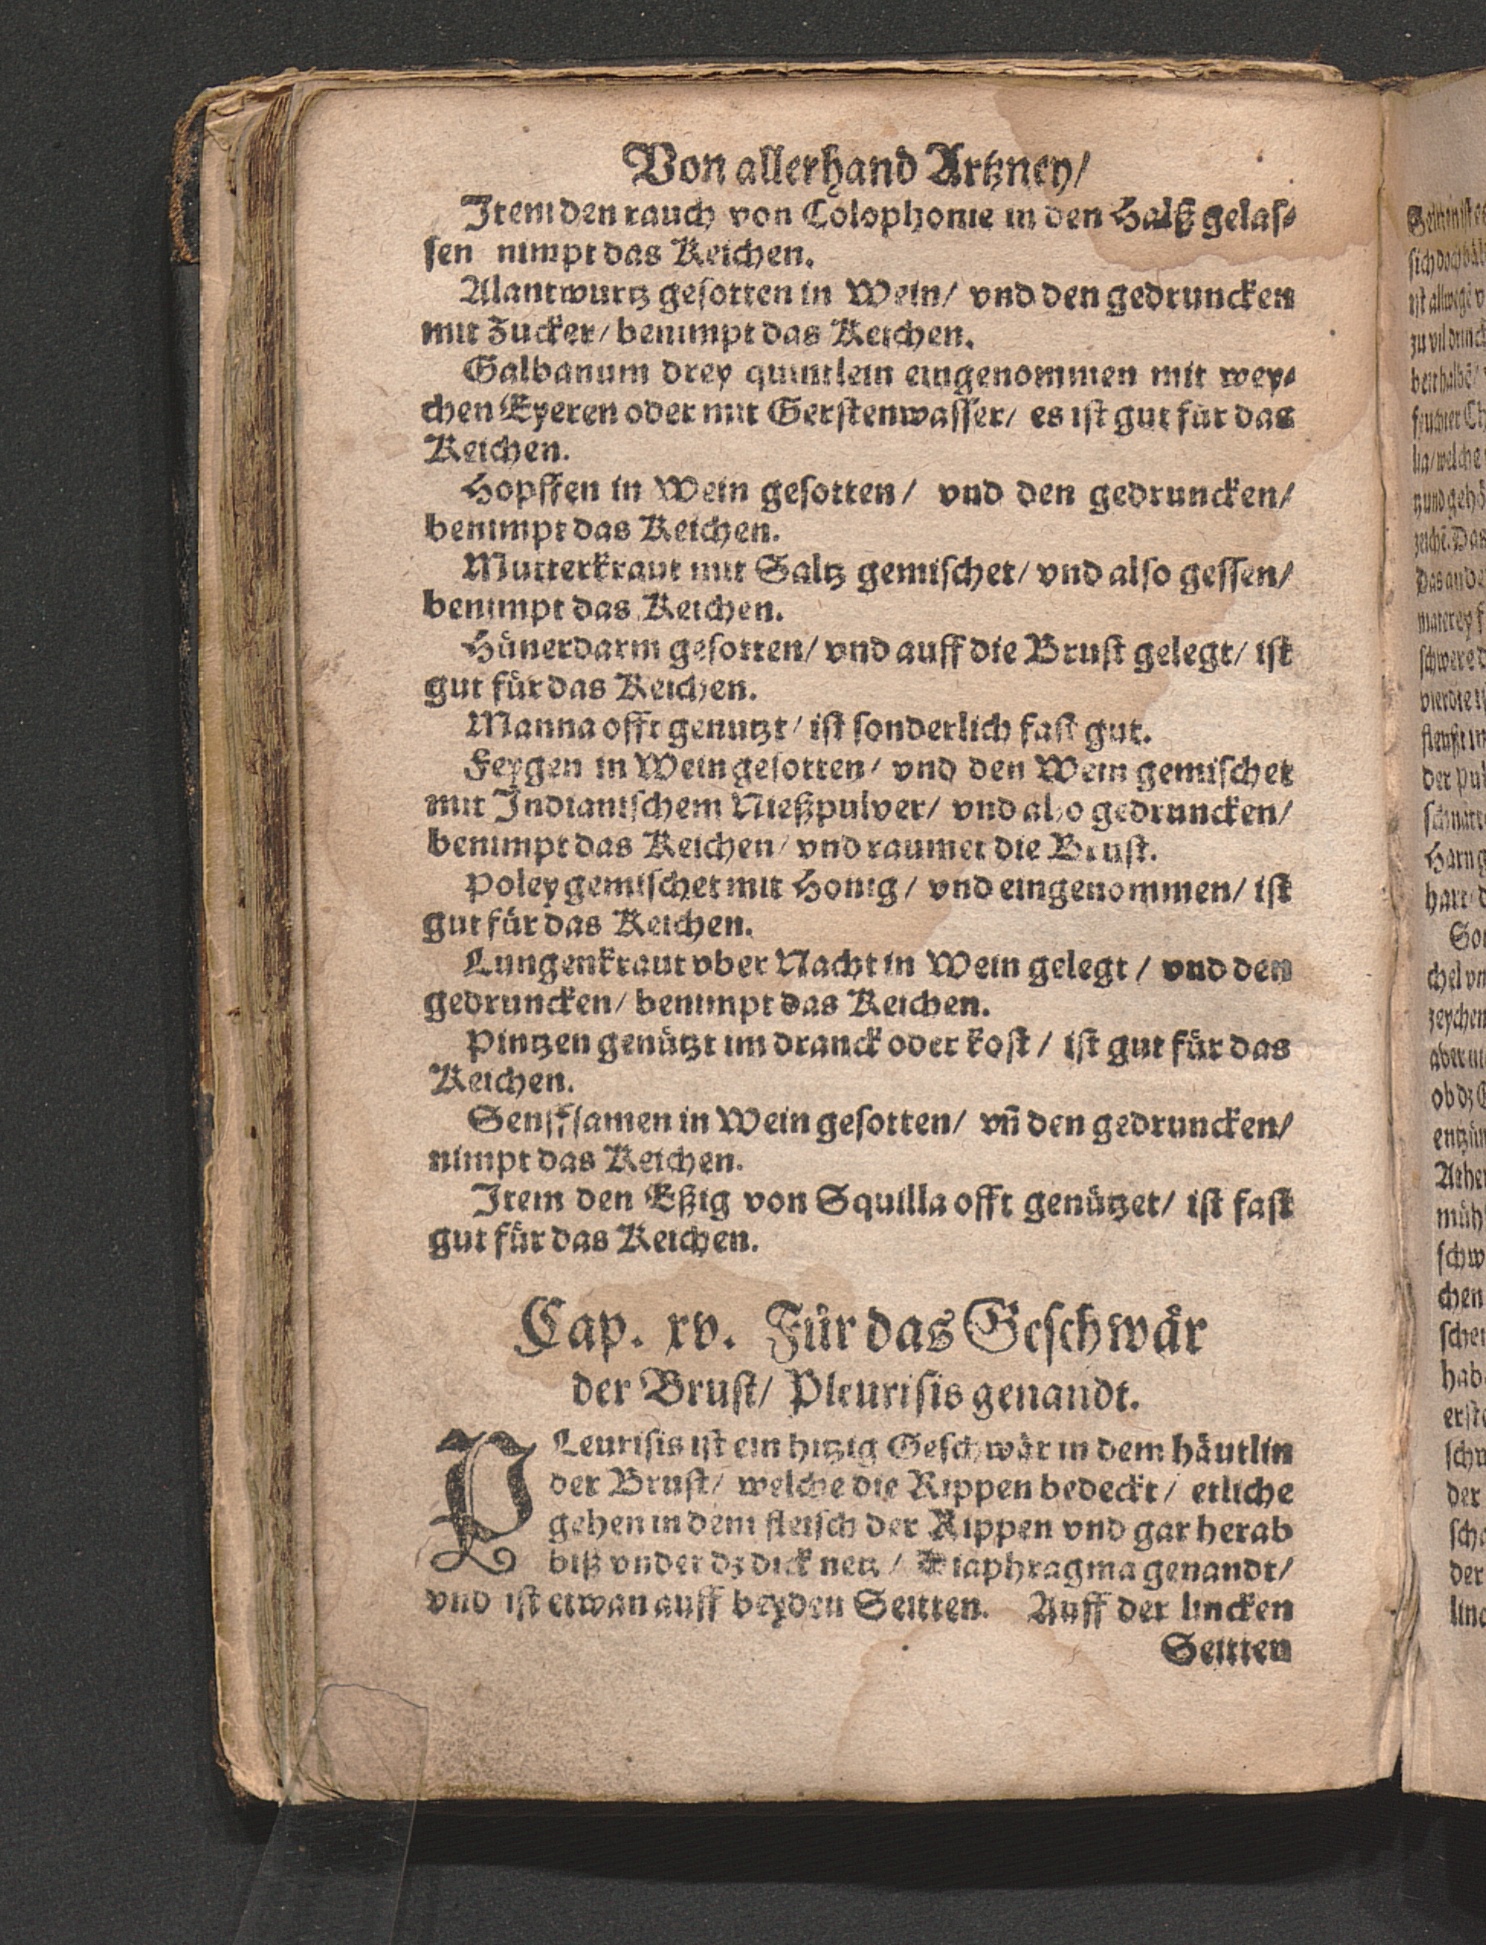 Von allerhand Artzney/
Item den rauch von Colophonie in den Halß gelas⸗
sen nimpt das Keichen.
Alantwurtz gesotten in Wein/ vnd den gedruncken
mit Zucker/ benimpt das Keichen.
Galbanum drey quintlein eingenommen mit wey⸗
chen Eyeren oder mit Gerstenwasser/ es ist gut für das
Keichen.
Hopffen in Wein gesotten/ vnd den gedruncken/
benimpt das Keichen.
Mutterkraut mit Saltz gemischet/ vnd also gessen/
benimpt das Keichen.
Hünerdarm gesotten/ vnd auff die Brust gelegt/ ist
gut für das Keichen.
Manna offt genutzt/ ist sonderlich fast gut.
Feygen in Wein gesotten/ vnd den Wein gemischet
mit Indianischem Nießpulver/ vnd also gedruncken/
benimpt das Keichen/ vnd raumet die Brust.
Poley gemischet mit Honig/ vnd eingenommen/ ist
gut für das Keichen.
Lungenkraut vber Nacht in Wein gelegt/ vnd den
gedruncken/ benimpt das Keichen.
Pintzen genützt im dranck oder kost/ ist gut für das
Keichen.
Senffsamen in Wein gesotten/ vñ den gedruncken/
nimpt das Keichen.
Item den Eßig von Squilla offt genützet/ ist fast
gut für das Keichen.
Cap. xv. Für das Geschwär
der Brust/ Pleurisis genandt.
PLeurisis ist ein hitzig Geschwär in dem häutlin
der Brust/ welche die Rippen bedeckt/ etliche
gehen in dem fleisch der Rippen vnd gar herab
biß vnder dz dick netz/ Diaphragma genandt/
vnd ist etwan auff beyden Seitten. Auff der lincken
Seitten